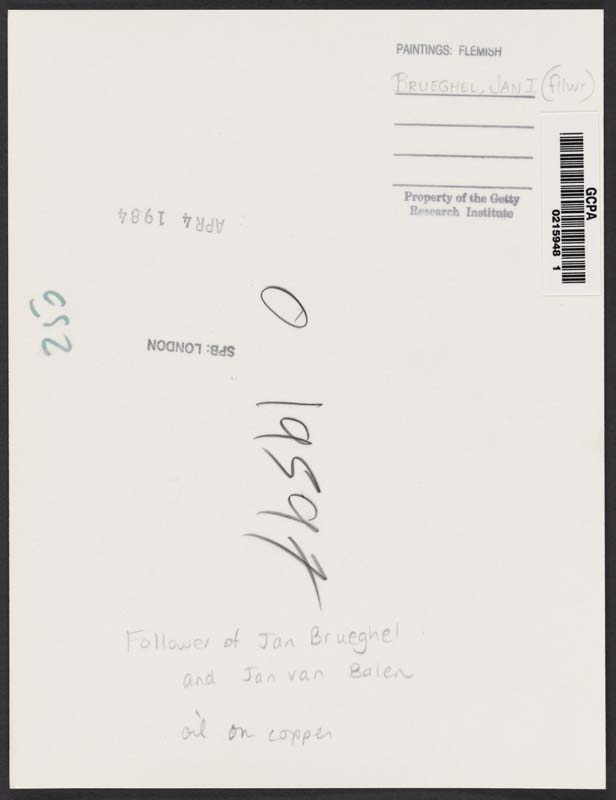 PAINTINGS: FLEMISH
BRUEGHEL, JAN I (fllwr)
Property of the Getty
Research Institute
GCPA
0215948 1
APR 4 1984
250
SPB: LONDON
0
19594
Follower of Jan Brueghel
and Jan van Balen
oil on copper